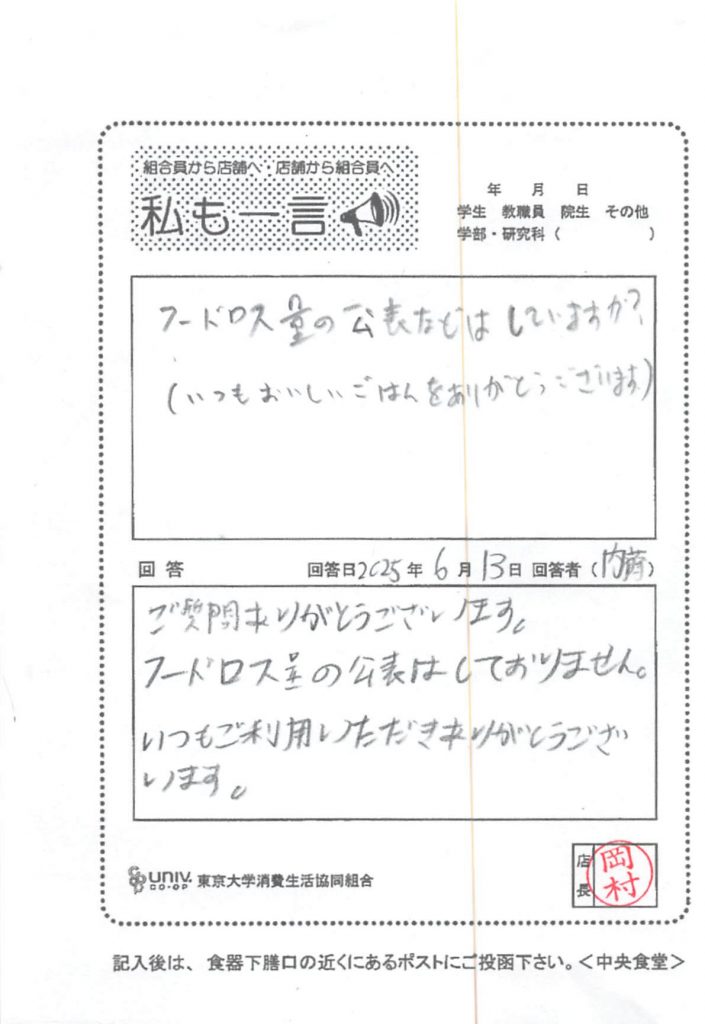 組合員から店舗へ・店舗から組合員へ
私も一言
年 月 日
学生 教職員 院生 その他
学部・研究科 ( )
フードロス量の公表などはしていますか?
(いつもおいしいごはんをありがとうございます)
回答 回答日2025年6月13日 回答者(内藤)
ご質問ありがとうございます。
フードロス量の公表はしておりません。
いつもご利用いただきありがとうござ
います。
UNIV. CO-OP 東京大学消費生活協同組合
店長 岡村
記入後は、食器下膳口の近くにあるポストにご投函下さい。<中央食堂>